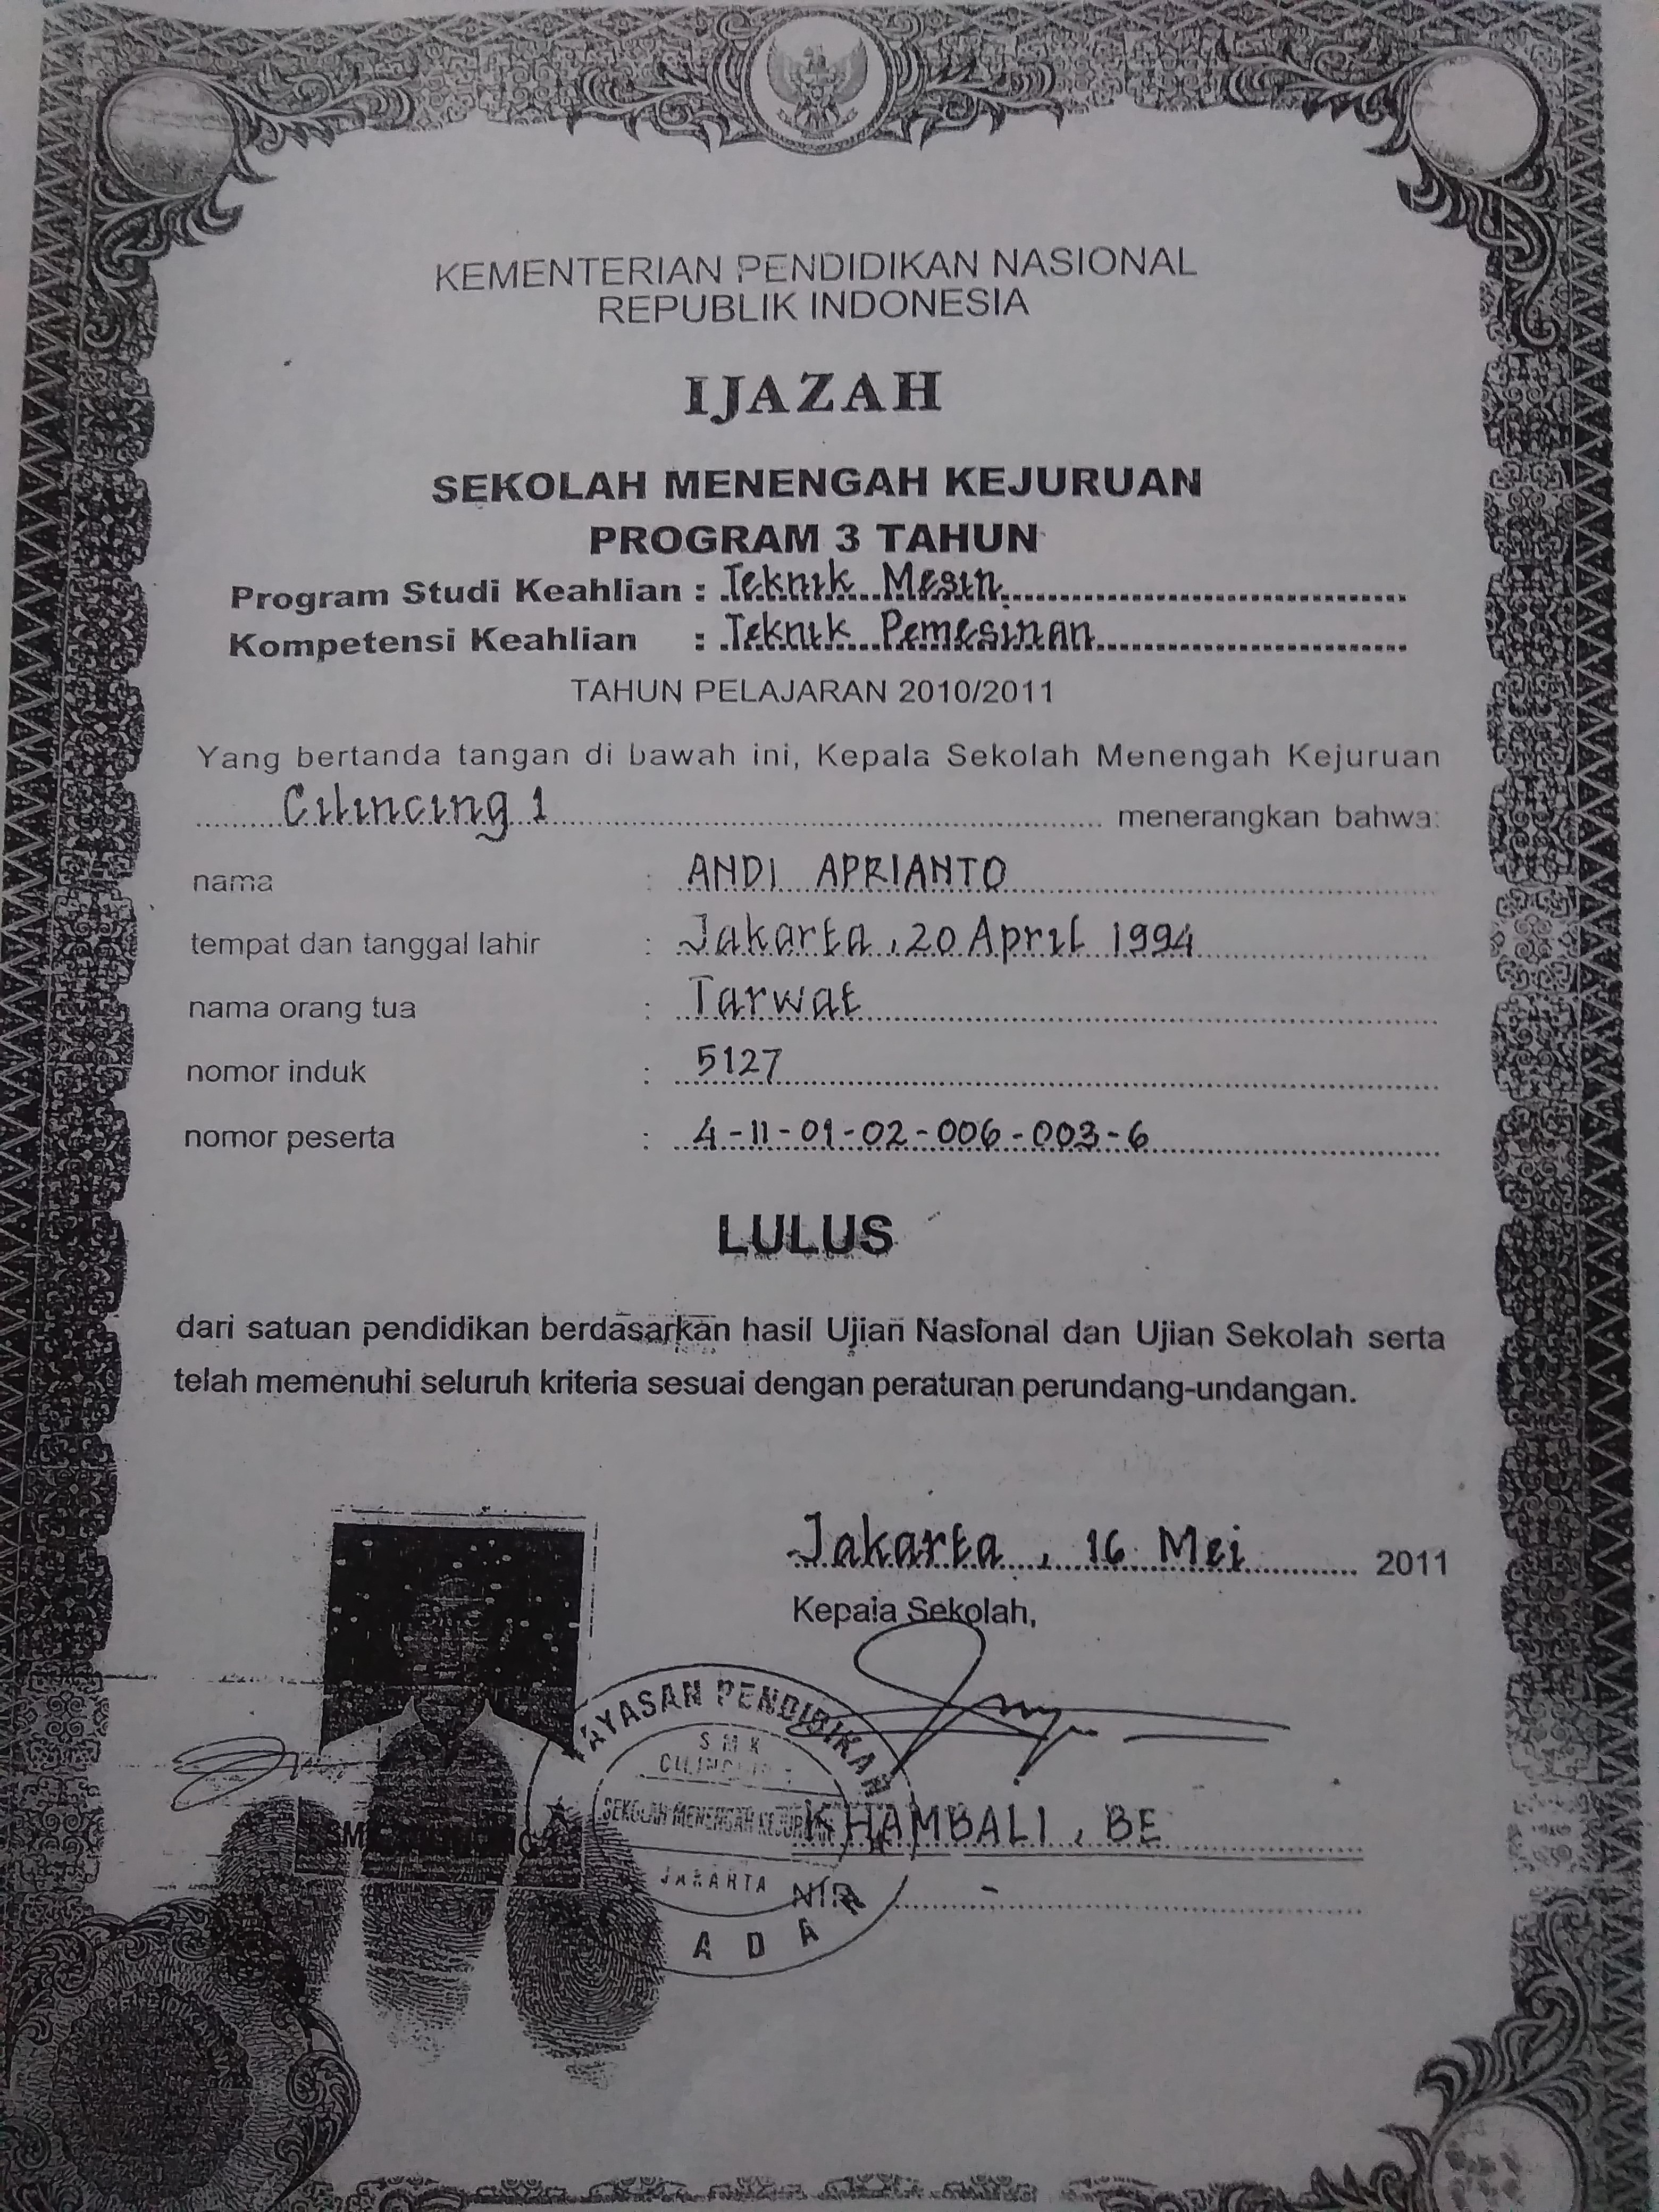 KEMENTERIAN PENDIDIKAN NASIONAL
REPUBLIK INDONESIA
IJAZAH
SEKOLAH MENENGAH KEJURUAN
PROGRAM 3 TAHUN
Program Studi Keahlian : Teknik Mesin
Kompetensi Keahlian : Teknik Pemesinan
TAHUN PELAJARAN 2010/2011
Yang bertanda tangan di bawah ini, Kepala Sekolah Menengah Kejuruan
Cilincing 1 menerangkan bahwa:
nama : ANDI APRIANTO
tempat dan tanggal lahir : Jakarta, 20 April 1994
nama orang tua : Tarwat
nomor induk : 5127
nomor peserta : 4-11-01-02-006-003-6
LULUS
dari satuan pendidikan berdasarkan hasil Ujian Nasional dan Ujian Sekolah serta
telah memenuhi seluruh kriteria sesuai dengan peraturan perundang-undangan.
Jakarta, 16 Mei 2011
Kepala Sekolah,
YAYASAN PENDIDIKAN
SMK
SEKOLAH MENENGAH KEJURUAN
JAKARTA
KHAMBALI, BE
NIP -